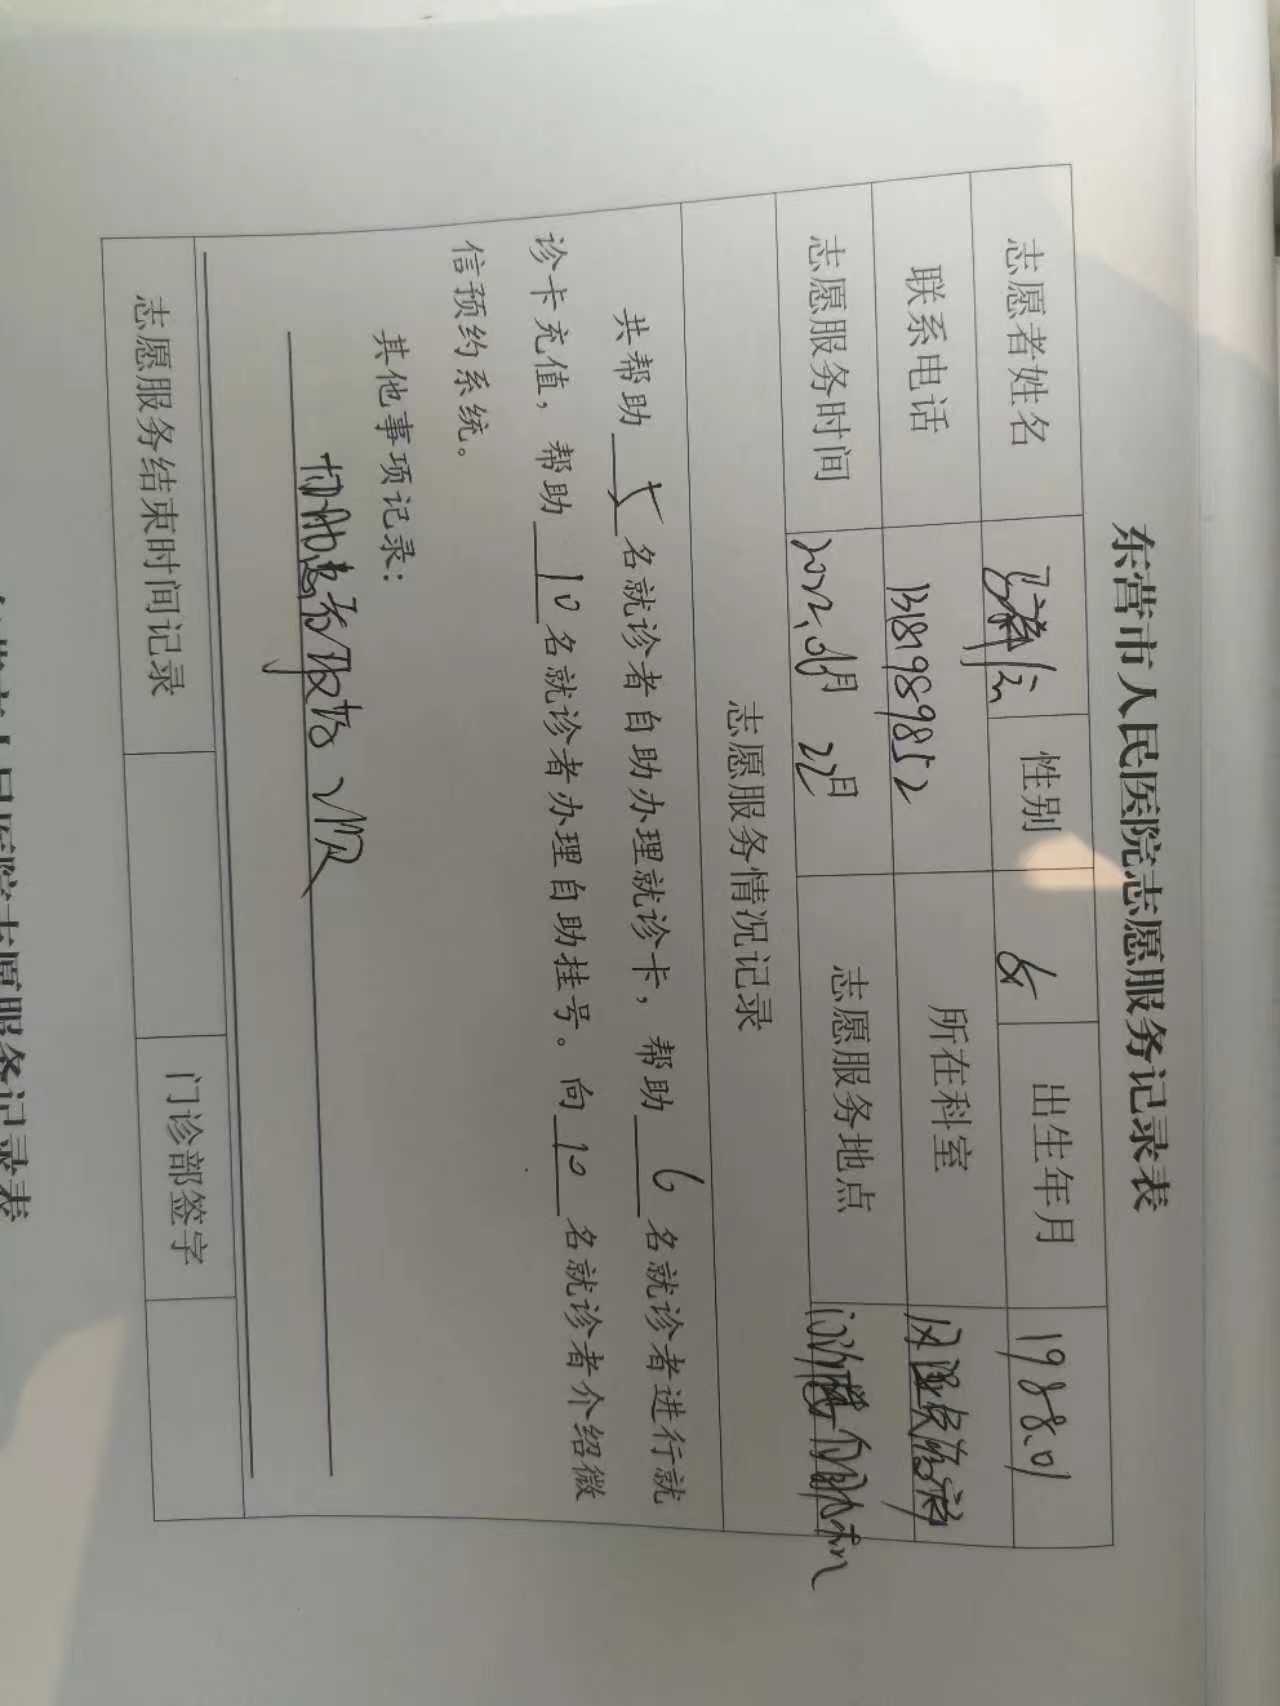 东营市人民医院志愿服务记录表
志愿者姓名 性别 女 出生年月 1988.01
联系电话 13181989852 所在科室
志愿服务时间 2022. 月 22日 志愿服务地点
志愿服务情况记录
共帮助 5 名就诊者自助办理就诊卡，帮助 6 名就诊者进行就
诊卡充值，帮助 10 名就诊者办理自助挂号。向 10 名就诊者介绍微
信预约系统。
其他事项记录：
协助患者取检
志愿服务结束时间记录 门诊部签字
人民医院志愿服务记录表